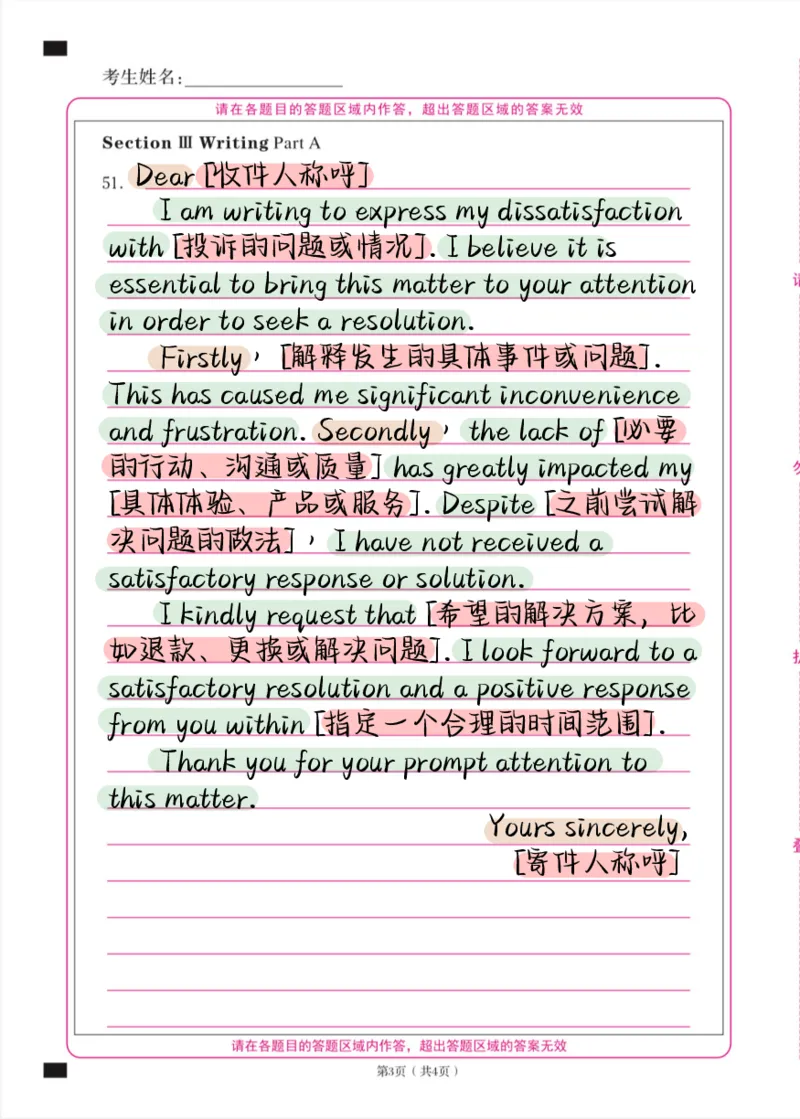 考生姓名：
请在各题目的答题区域内作答，超出答题区域的答案无效
Section Ⅲ Writing Part A
51. Dear [收件人称呼]
I am writing to express my dissatisfaction
with [投诉的问题或情况]. I believe it is
essential to bring this matter to your attention
in order to seek a resolution.
Firstly，[解释发生的具体事件或问题].
This has caused me significant inconvenience
and frustration. Secondly，the lack of [必要
的行动、沟通或质量] has greatly impacted my
[具体体验、产品或服务]. Despite [之前尝试解
决问题的做法]，I have not received a
satisfactory response or solution.
I kindly request that [希望的解决方案，比
如退款、更换或解决问题]. I look forward to a
satisfactory resolution and a positive response
from you within [指定一个合理的时间范围].
Thank you for your prompt attention to
this matter.
Yours sincerely,
[寄件人称呼]
请在各题目的答题区域内作答，超出答题区域的答案无效
第3页（共4页）